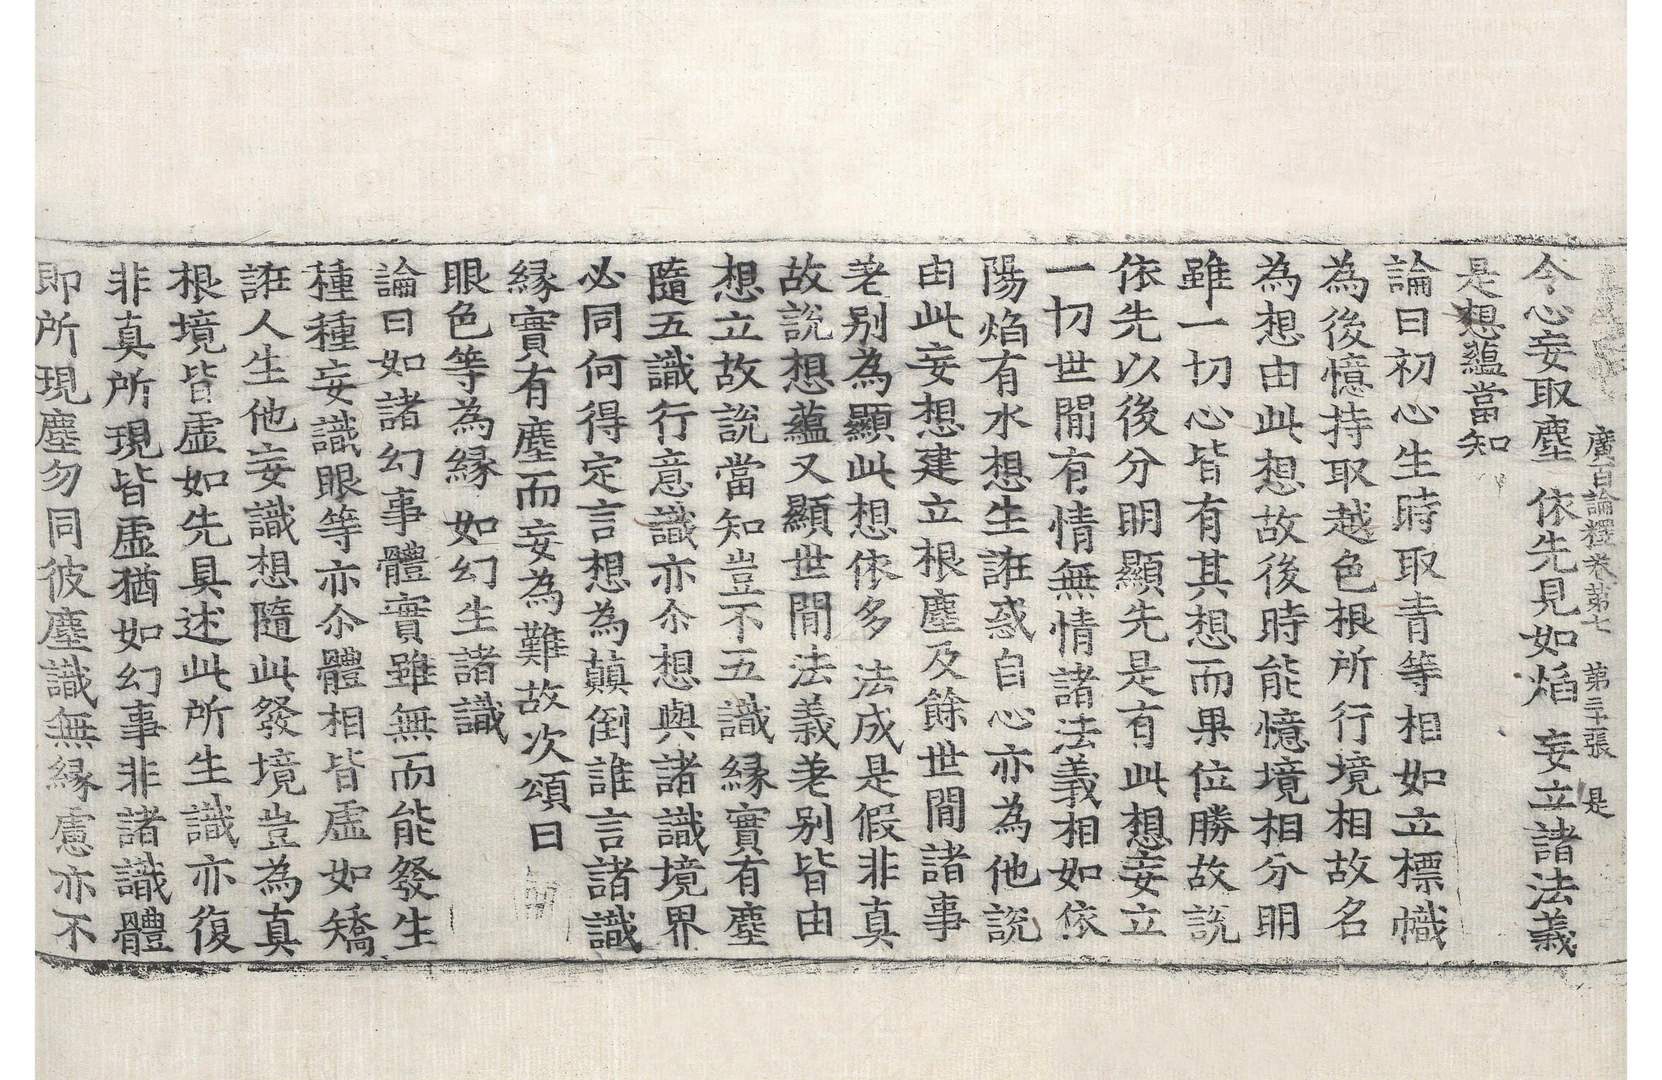 廣百論釋卷第七 第三十二張 是
令心妄取塵 依先見如焰 妄立諸法義
是想蘊當知
論曰初心生時取青等相如立標幟
為後憶持取越色根所行境相故名
為想由此想故後時能憶境相分明
雖一切心皆有其想而果位勝故說
依先以後分明顯先是有此想妄立
一切世間有情無情諸法義相如依
陽焰有水想生誑惑自心亦為他說
由此妄想建立根塵及餘世間諸事
差別為顯此想依多 法成是假非真
故說想蘊又顯世間法義差別皆由
想立故說當知豈不五識緣實有塵
隨五識行意識亦尒想與諸識境界
必同何得定言想為顛倒誰言諸識
緣實有塵而妄為難故次頌曰
眼色等為緣 如幻生諸識
論曰如諸幻事體實雖無而能發生
種種妄識眼等亦尒體相皆虛如矯
誑人生他妄識想隨此發境豈為真
根境皆虛如先具述此所生識亦復
非真所現皆虛猶如幻事非諸識體
即所現塵勿同彼塵識無緣慮亦不